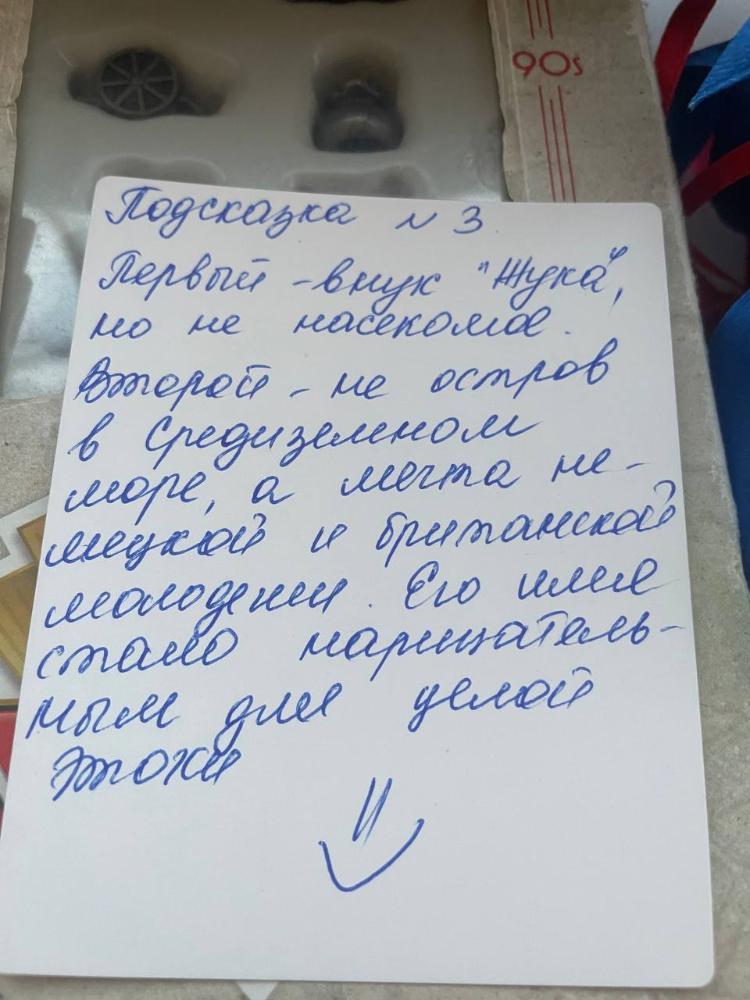 90s
Подсказка № 3
Первый - внук "Жука",
но не насекомое.
Второй - не остров
в Средиземном
море, а мечта не-
мецкой и британской
молодежи. Его имя
стало нарицатель-
ным для целой
эпохи